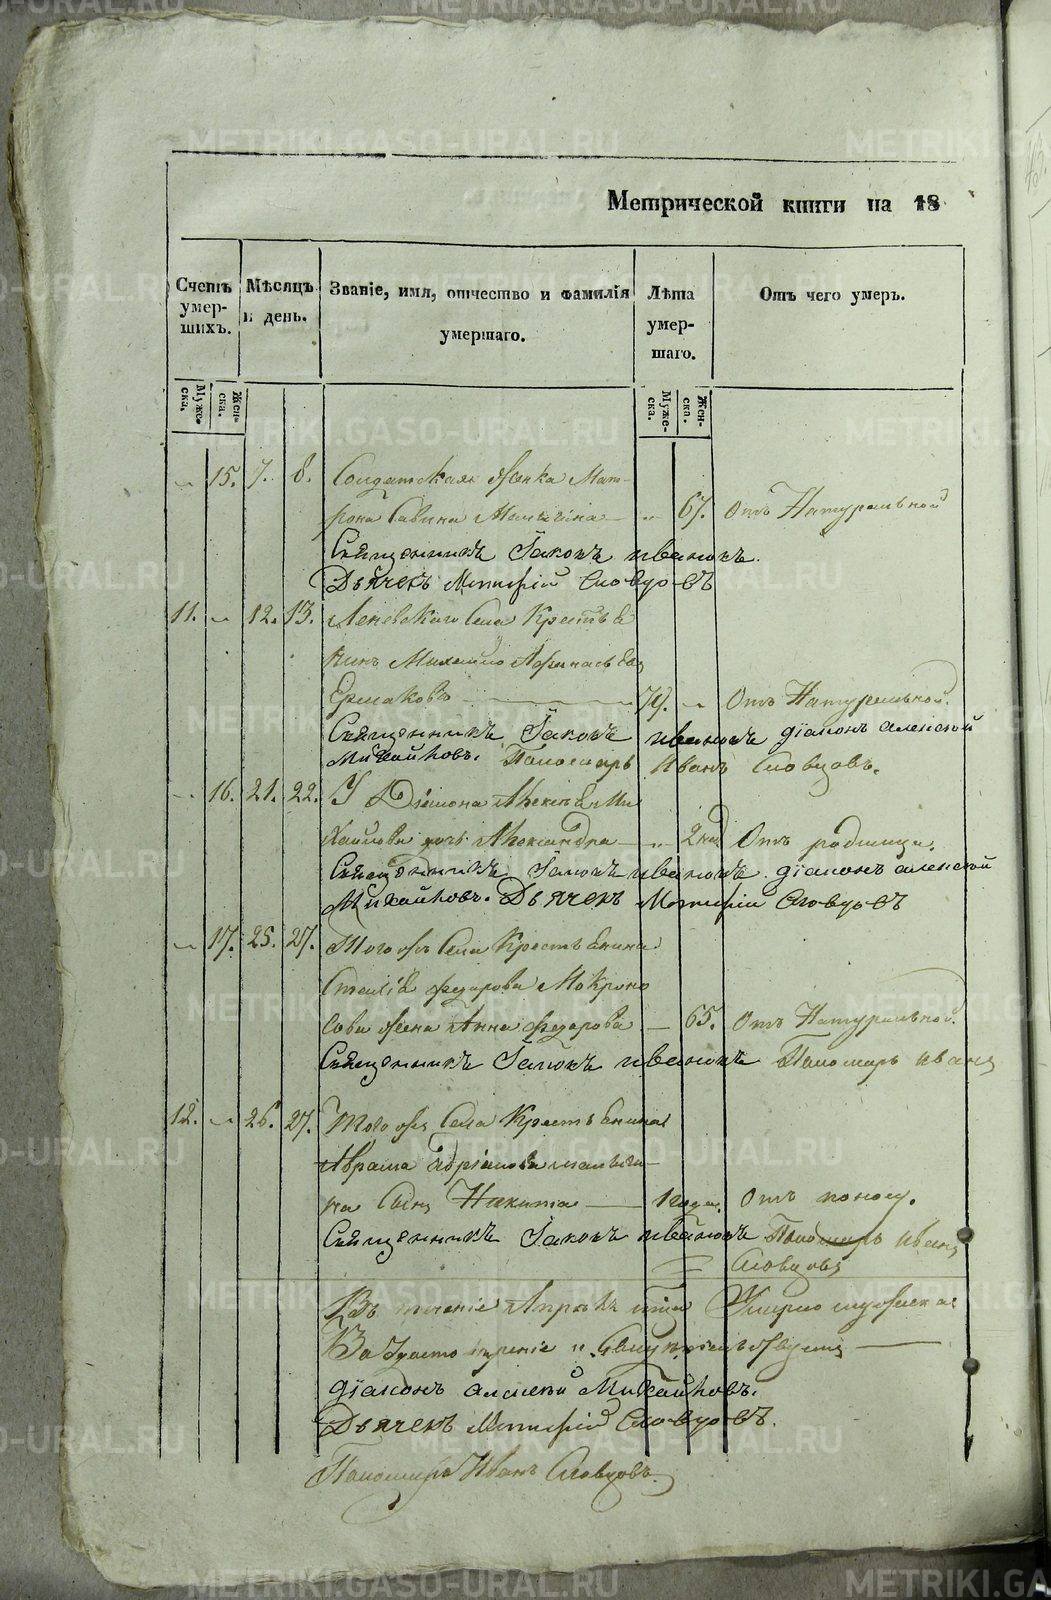 Метрической книги на 18
Счетъ умер-шихъ.
Мѣсяцъ и день.
Званіе, имя, отчество и фамилія умершаго.
Лѣта умер-шаго.
Отъ чего умеръ.
Муже-ска.
Жен-ска.
Муже-ска.
Жен-ска.
15. 7. 8. Солдатская жонка Мат-
рона Савина 67. Отъ Натуральной
Священникъ Іаковъ Ивановъ.
Дьячекъ Словцовъ
11. 12. 13. Села Кресть
нинъ Михайло Афанасьевъ
Ермаковъ 79. Отъ Натуральной.
Священникъ Іаковъ Ивановъ діаконъ алексей
Михайловъ. Пономарь Иванъ Словцовъ.
16. 21. 22. У Діакона Алексея Ми
хайлова дочь Александра 2 нед Отъ родимца.
Священникъ Іаковъ Ивановъ. діаконъ алексей
Михайловъ. Дьячекъ Словцовъ
17. 25. 27. Того жъ Села Крестьянина
федорова Мокроно
сова жена Анна федорова 65. Отъ Натуральной.
Священникъ Іаковъ Ивановъ Пономарь Иванъ
12. 26. 27. Того жъ Села Крестьянина
Аврама
на Сынъ Никита 1 года. Отъ поносу.
Священникъ Іаковъ Ивановъ Пономарь Иванъ
Словцовъ
Въ теченіе Апреля Умерло мужеска
діаконъ алексей Михайловъ.
Дьячекъ Словцовъ.
Пономарь Иванъ Словцовъ
METRIKI.GASO-URAL.RU